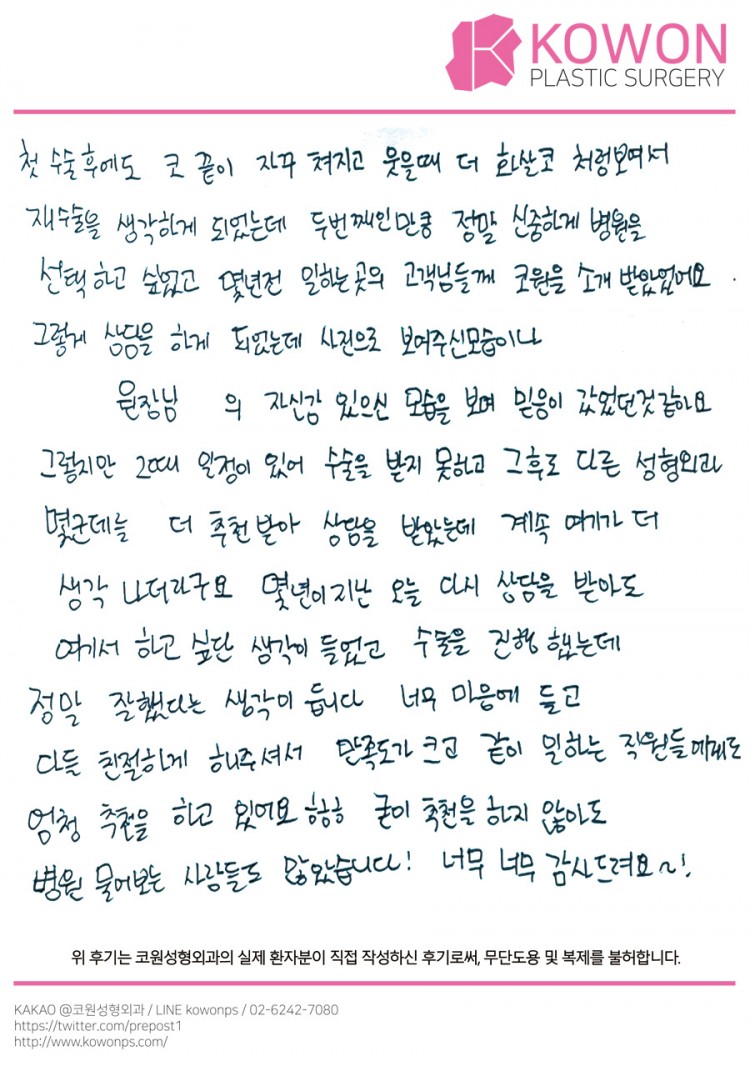 KOWON
PLASTIC SURGERY
첫 수술후에도 코 끝이 자꾸 쳐지고 웃을때 더 화살코 처럼보여서
재수술을 생각하게 되었는데 두번째인만큼 정말 신중하게 병원을
선택하고 싶었고 몇년전 일하는곳의 고객님들께 코원을 소개 받았었어요.
그렇게 상담을 하게 되었는데 사진으로 보여주신모습이나
원장님 의 자신감 있으신 모습을 보며 믿음이 갔었던것같아요
그렇지만 그때 일정이 있어 수술을 받지 못하고 그후로 다른 성형외과
몇군데를 더 추천받아 상담을 받았는데 계속 여기가 더
생각 나더라구요 몇년이지난 오늘 다시 상담을 받아도
여기서 하고 싶단 생각이 들었고 수술을 진행했는데
정말 잘했다는 생각이 듭니다 너무 마음에 들고
다들 친절하게 해주셔서 만족도가 크고 같이 일하는 직원들에게도
엄청 추천을 하고 있어요 하하 굳이 추천을 하지 않아도
병원 물어보는 사람들도 많았습니다! 너무 너무 감사드려요~!
위 후기는 코원성형외과의 실제 환자분이 직접 작성하신 후기로써, 무단도용 및 복제를 불허합니다.
KAKAO @코원성형외과 / LINE kowonps / 02-6242-7080
https://twitter.com/prepost1
http://www.kowonps.com/